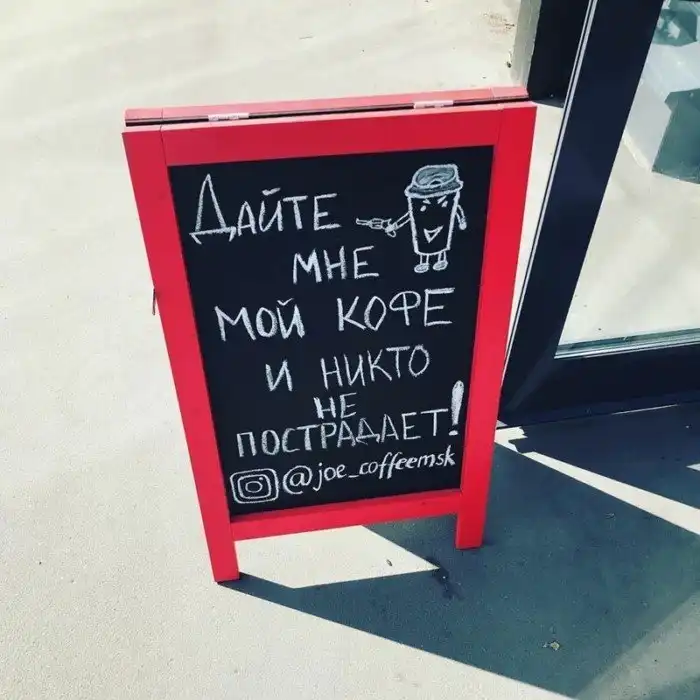 Дайте
мне
мой кофе
и никто
не
пострадает!
@joe_coffeemsk